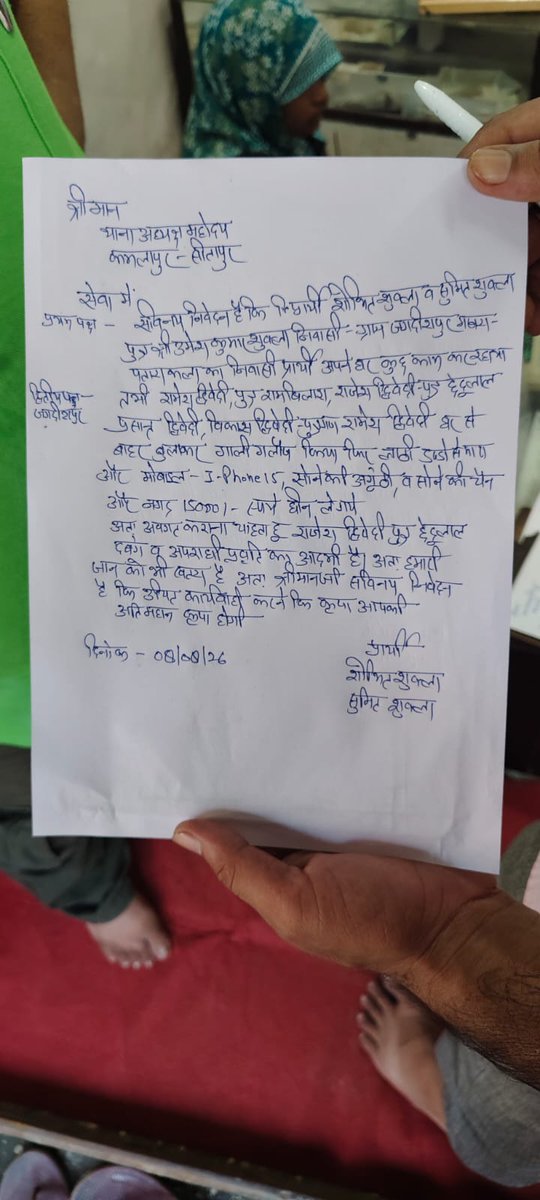 श्रीमान
थाना अध्यक्ष महोदय
कमलापुर - सीतापुर
सेवा में
प्रथम पक्ष - सविनय निवेदन है कि प्रार्थी शोभित शुक्ला व सुमित शुक्ला
पुत्र श्री उमेश कुमार शुक्ला निवासी - ग्राम जगदीशपुर
कला का निवासी प्रार्थी अपने घर कुछ काम कर रहा था
द्वितीय पक्ष जगदीशपुर तभी रामेश द्विवेदी, पुत्र रामविलाश, राजेश द्विवेदी - पुत्र छेदूलाल
प्रसान्त द्विवेदी, विकास द्विवेदी - पुत्रगण रामेश द्विवेदी घर से
बाहर बुलाकर गाली गलौच किया फिर लाठी डण्डो से मारा
और मोबाइल - I-Phone 15, सोने की अंगूठी, व सोने की चैन
और नगद 15000/- रुपये छीन ले गये
अतः अवगत कराना चाहता हू राजेश द्विवेदी पुत्र छेदूलाल
दबंग व अपराधी प्रवृति का आदमी है। अतः हमारी
जान को भी खतरा है अतः श्रीमानजी सविनय निवेदन
है कि उचित कार्यवाही करने कि कृपा आपकी
अति महान कृपा होगी
दिनांक - 08/08/26
प्रार्थी
शोभित शुक्ला
सुमित शुक्ला